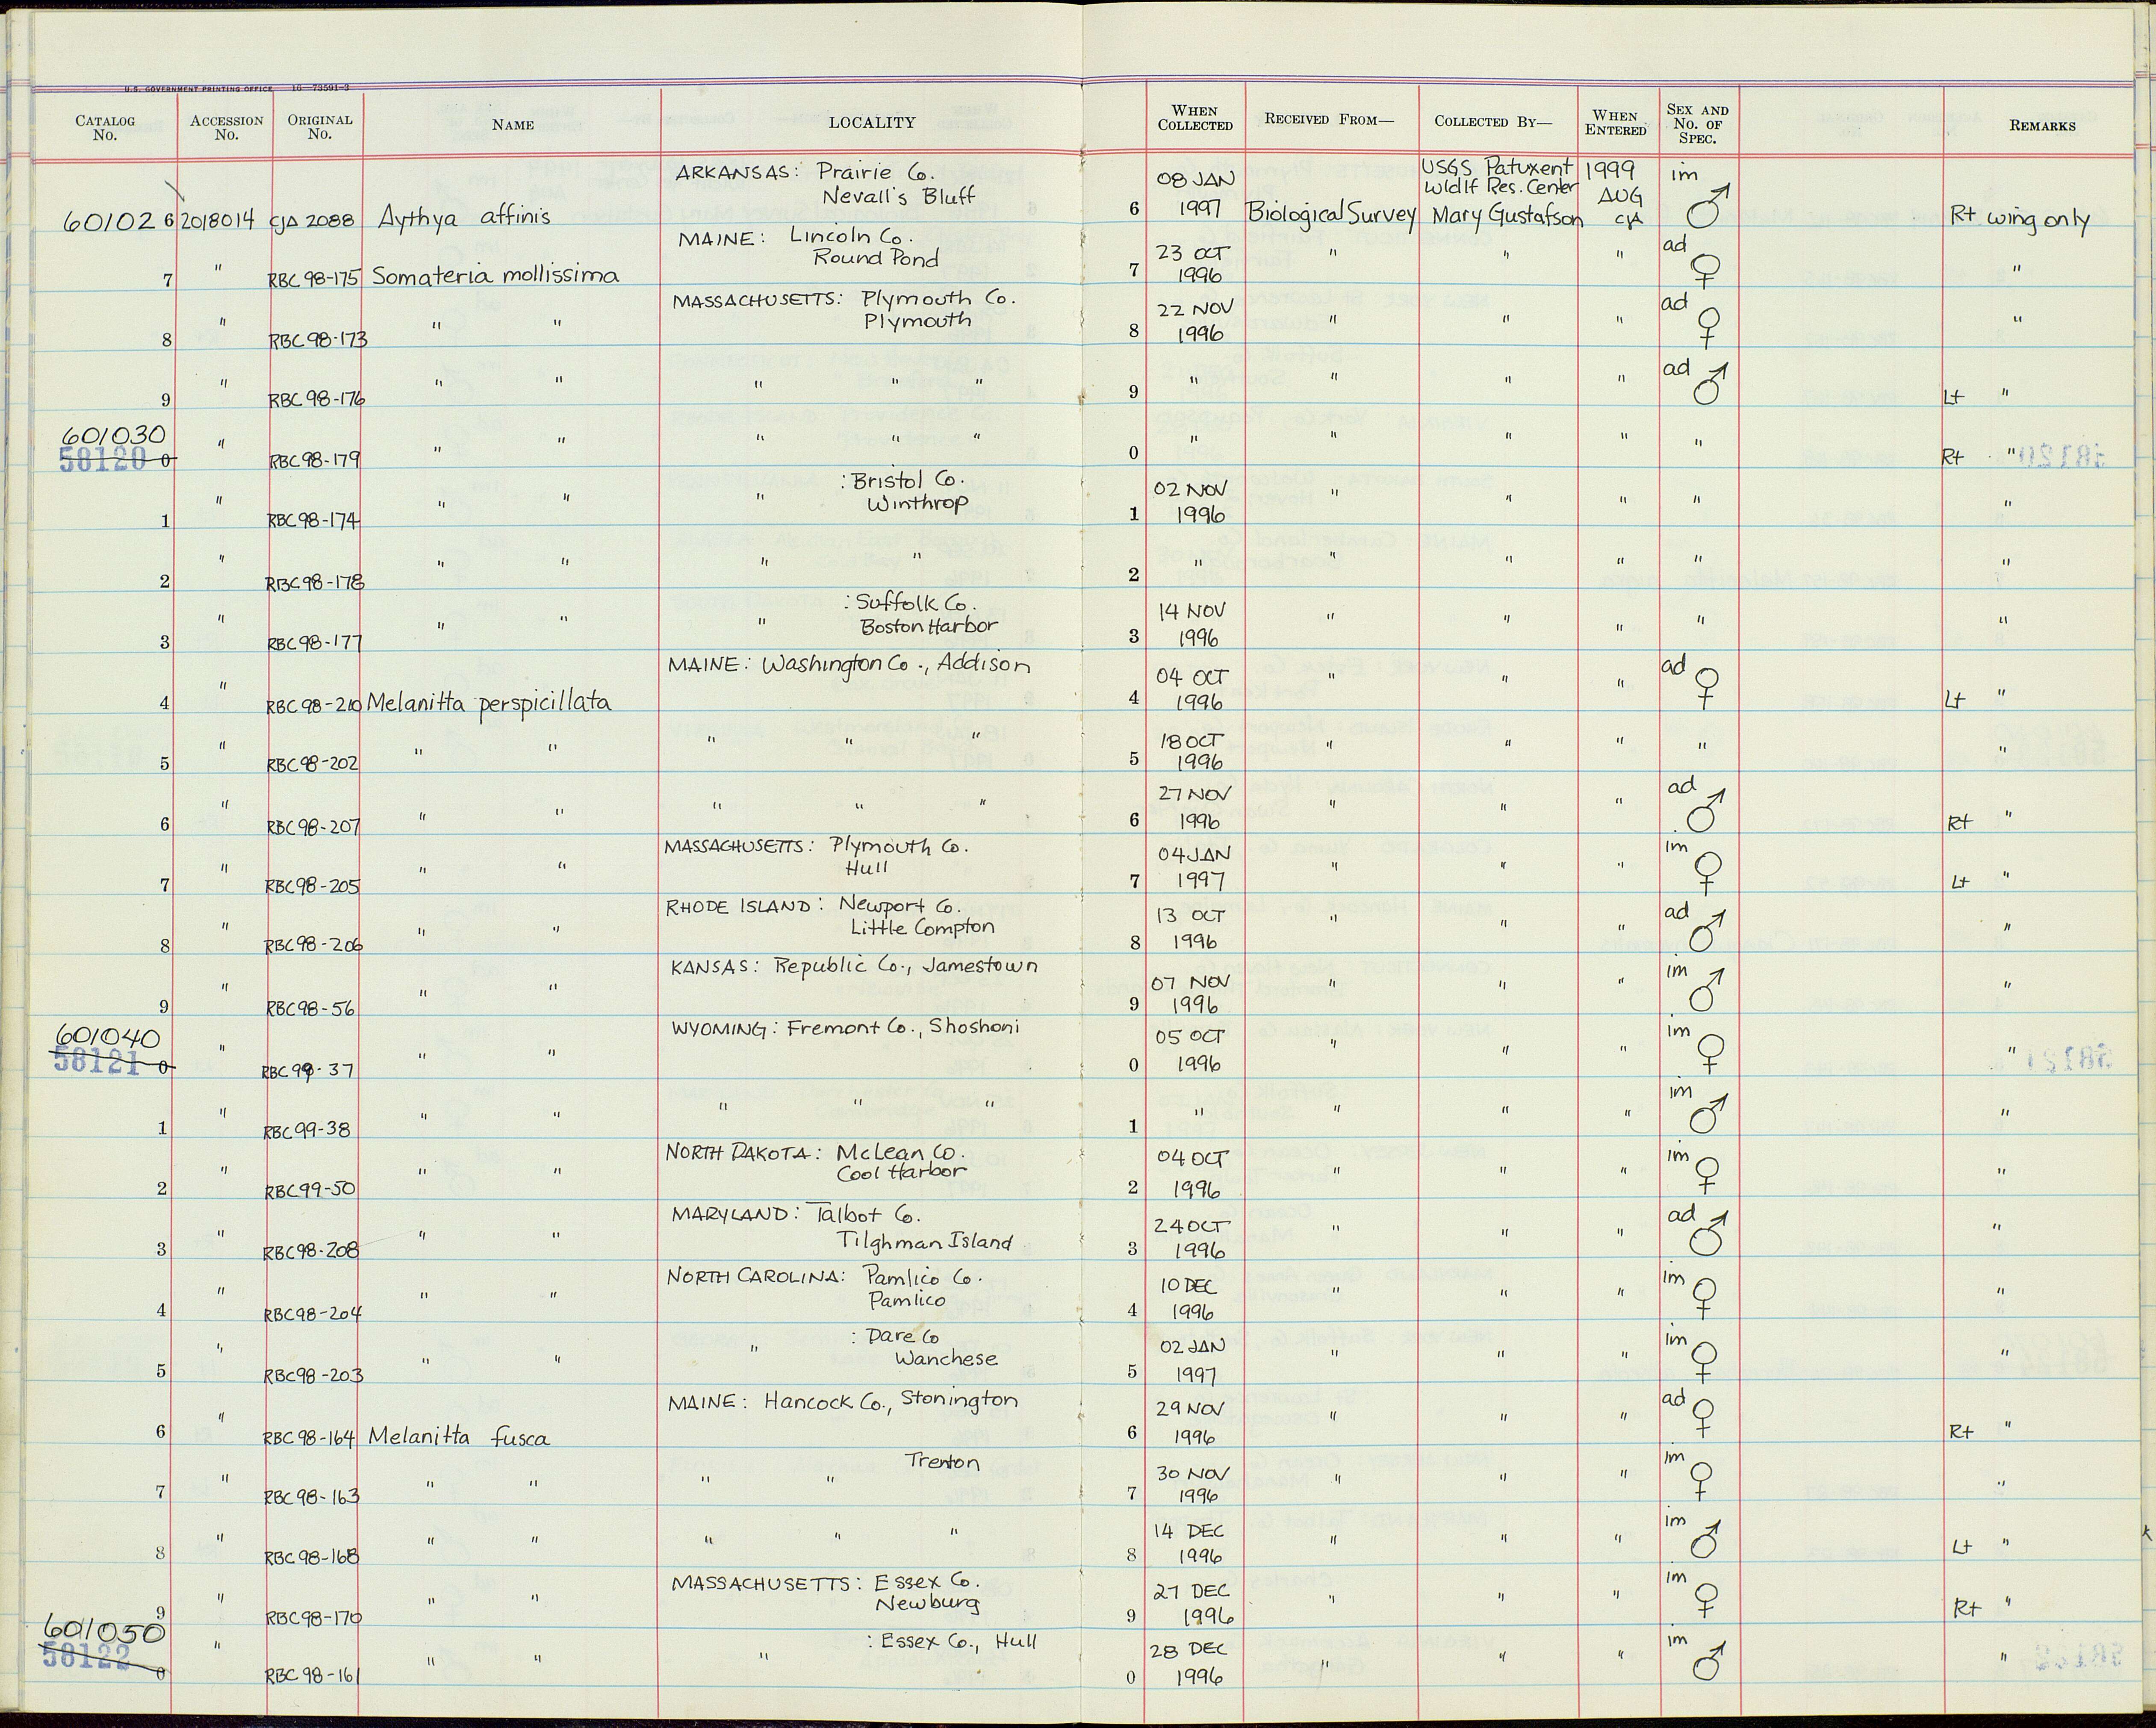 U.S. GOVERNMENT PRINTING OFFICE 16—73591-3
CATALOG No. ACCESSION No. ORIGINAL No. NAME LOCALITY WHEN COLLECTED RECEIVED FROM— COLLECTED BY— WHEN ENTERED SEX AND No. OF SPEC. REMARKS
601026 2018014 CJA 2088 Aythya affinis ARKANSAS: Prairie Co. Nevall's Bluff 6 08 JAN 1997 Biological Survey USGS Patuxent Wldlf Res. Center Mary Gustafson 1999 AUG CJA im ♂ Rt wing only
7 " RBC 98-175 Somateria mollissima MAINE: Lincoln Co. Round Pond 7 23 OCT 1996 " " " ad ♀ "
8 " RBC 98-173 " " MASSACHUSETTS: Plymouth Co. Plymouth 8 22 NOV 1996 " " " ad ♀ "
9 " RBC 98-176 " " " " " 9 " " " " ad ♂ Lt "
601030 58120 0 " RBC 98-179 " " " " " 0 " " " " " Rt "
1 " RBC 98-174 " " " : Bristol Co. Winthrop 1 02 NOV 1996 " " " " "
2 " RBC 98-178 " " " " 2 " " " " " "
3 " RBC 98-177 " " " : Suffolk Co. Boston Harbor 3 14 NOV 1996 " " " " "
4 " RBC 98-210 Melanitta perspicillata MAINE: Washington Co., Addison 4 04 OCT 1996 " " " ad ♀ Lt "
5 " RBC 98-202 " " " " " 5 18 OCT 1996 " " " " "
6 " RBC 98-207 " " " " " 6 27 NOV 1996 " " " ad ♂ Rt "
7 " RBC 98-205 " " MASSACHUSETTS: Plymouth Co. Hull 7 04 JAN 1997 " " " im ♀ Lt "
8 " RBC 98-206 " " RHODE ISLAND: Newport Co. Little Compton 8 13 OCT 1996 " " " ad ♂ "
9 " RBC 98-56 " " KANSAS: Republic Co., Jamestown 9 07 NOV 1996 " " " im ♂ "
601040 58121 0 " RBC 99-37 " " WYOMING: Fremont Co., Shoshoni 0 05 OCT 1996 " " " im ♀ "
1 " RBC 99-38 " " " " " 1 " " " " im ♂ "
2 " RBC 99-50 " " NORTH DAKOTA: McLean Co. Cool Harbor 2 04 OCT 1996 " " " im ♀ "
3 " RBC 98-208 " " MARYLAND: Talbot Co. Tilghman Island 3 24 OCT 1996 " " " ad ♂ "
4 " RBC 98-204 " " NORTH CAROLINA: Pamlico Co. Pamlico 4 10 DEC 1996 " " " im ♀ "
5 " RBC 98-203 " " " : Dare Co Wanchese 5 02 JAN 1997 " " " im ♀ "
6 " RBC 98-164 Melanitta fusca MAINE: Hancock Co., Stonington 6 29 NOV 1996 " " " ad ♀ Rt "
7 " RBC 98-163 " " " " Trenton 7 30 NOV 1996 " " " im ♀ "
8 " RBC 98-168 " " " " " 8 14 DEC 1996 " " " im ♂ Lt "
9 " RBC 98-170 " " MASSACHUSETTS: Essex Co. Newburg 9 27 DEC 1996 " " " im ♀ Rt "
601050 58122 0 " RBC 98-161 " " " : Essex Co., Hull 0 28 DEC 1996 " " " im ♂ "